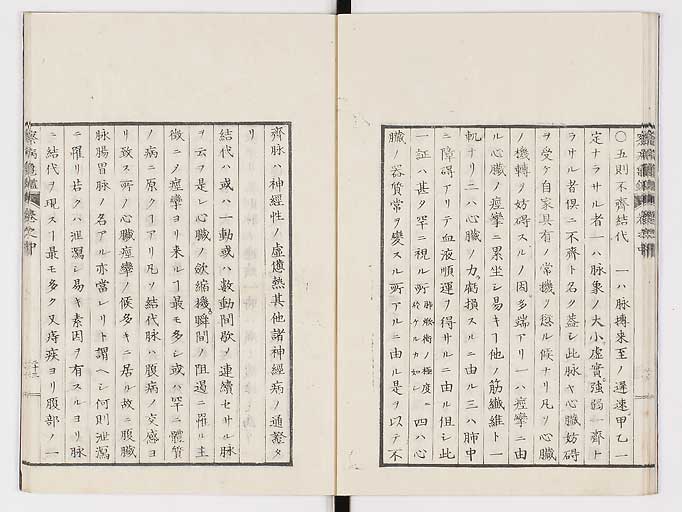 〇五則不齊結代 一ハ脉搏来至ノ遅速甲乙一
定ナラサル者一ハ脉象ノ大小虚實強弱一齊ト
ラサル者倶ニ不齊ト名ク蓋シ此脉ヤ心臓妨碍
ヲ受ケ自家具有ノ常機ヲ愆ル候ナリ凡ソ心臓
ノ機轉ヲ妨碍スルノ因多端アリ一ハ痙攣ニ由
ル心臓ノ痙攣ニ累坐シ易キヿ他ノ筋纖維ト一
軌ナリ二ハ心臓ノ力虧損スルニ由ル三ハ肺中
ニ障碍アリテ血液順運ヲ得サルニ由ル但シ此
一証ハ甚タ罕ニ視ル所肺焮衝ノ極度ニ於ケルカ如シ四ハ心
臓ノ器質常ヲ變スル所アルニ由ル是ヲ以テ不
齊脉ハ神經性ノ虚憊熱其他諸神經病ノ通證タ
リ
結代ハ或ハ一動或ハ數動間歇ヲ連續セサル脉
ヲ云ヲ是レ心臓ノ歛縮機瞬間ノ阻遏ニ罹ル主
徴ニメ痙攣ヨリ来ルヿ最モ多シ或ハ罕ニ體質
ノ病ニ原クヿアリ凡ソ結代脉ハ腹病ノ交感ヨ
リ致ス所ノ心臓痙攣ノ候多キニ居ル故ニ腹臓
脉腸胃脉ノ名アル亦當レリト謂ヘシ何則泄瀉
ニ罹リ若クハ泄瀉シ易キ素因ヲ有スルヨリ脉
ニ結代ヲ現スヿ最モ多ク又痔疾ヨリ腹部ノ一